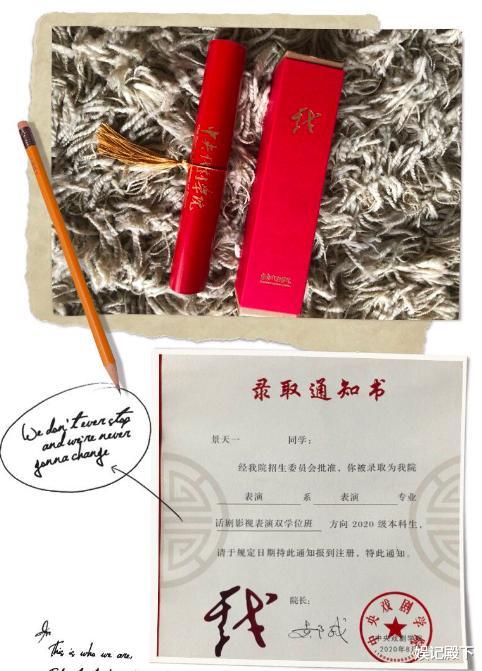 中央戏剧学院
戏
We don't ever stop
and we're never
gonna change
录取通知书
景天一 同学：
经我院招生委员会批准，你被录取为我院
表演 系 表演 专业
话剧影视表演双学位班 方向 2020 级本科生，
请于规定日期持此通知报到注册，特此通知。
院长：
戏
中央戏剧学院
中央戏剧学院
2020年8
This is who we are,
娱记殿下